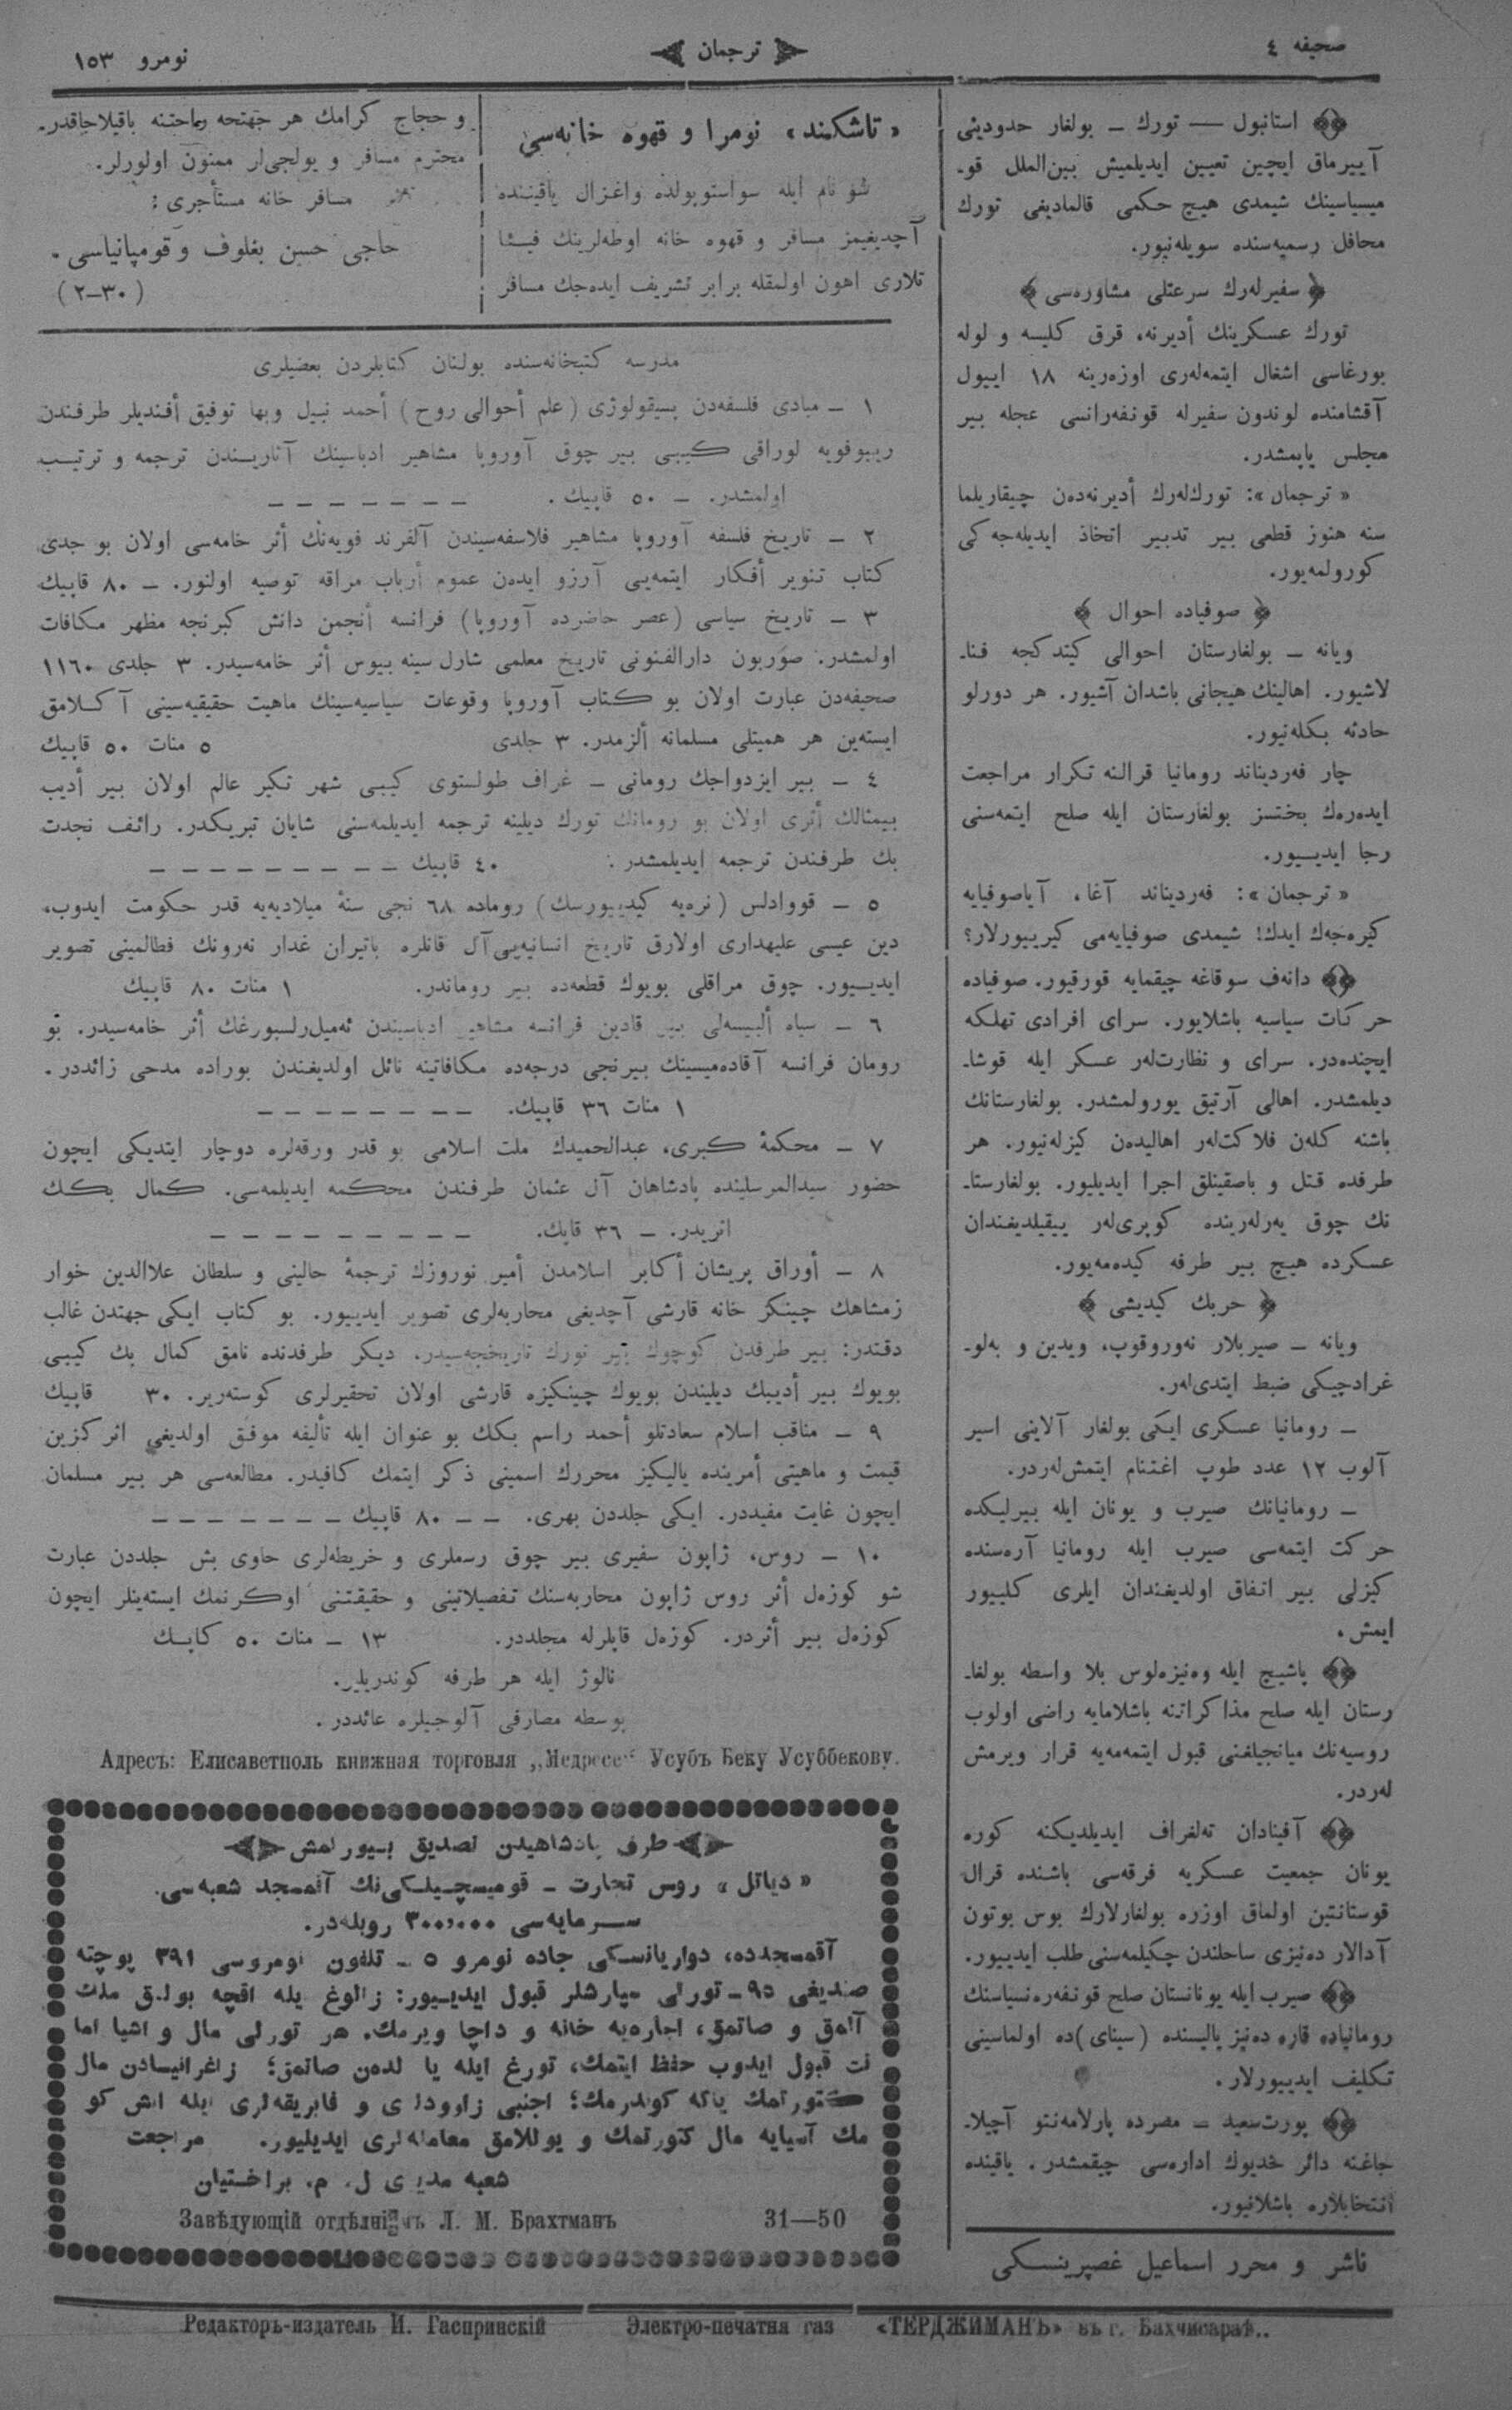 صحیفه ٤
ترجمان
نومرو ١٥٣
استانبول — تورك ـ بولغار حدودینی
آییرماق ایچین تعیین ایدیلمیش بین‌الملل قو‌ـ
میسیاسینك شیمدی هیچ حكمی قالمادیغی تورك
محافل رسمیه‌سنده سویله‌نیور.
﴿ سفیرلەرك سرعتلی مشاوره‌سی ﴾
تورك عسكرینك أدیرنه، قرق كلیسه و لوله
بورغاسی اشغال ایتمه‌لەری اوزەرینه ١٨ اییول
آقشامنده لوندون سفیرلە قونفەرانسی عجله بیر
مجلس یاپمشدر.
« ترجمان »: توركلەرك أدیرنەدەن چیقاریلما
سنه هنوز قطعی بیر تدبیر اتخاذ ایدیله‌جه‌كی
كورولمه‌یور.
﴿ صوفیاده احوال ﴾
ویانه ـ بولغارستان احوالی كیتدكجه فنا‌ـ
لاشیور. اهالینك هیجانی باشدان آشیور. هر دورلو
حادثه بكله‌نیور.
چار فەردیناند رومانیا قرالنه تكرار مراجعت
ایدەرەك بختسز بولغارستان ایله صلح ایتمه‌سنی
رجا ایدیـیور.
« ترجمان »: فەردیناند آغا، آیاصوفیایه
كیرەجەك ایدك! شیمدی صوفیایه‌می كیریبورلار؟
دانەف سوقاغه چیقمایه قورقیور. صوفیاده
حركات سیاسیه باشلایور. سرای افرادی تهلكه
ایچنده‌در. سرای و نظارت‌لەر عسكر ایله قوشا‌ـ
دیلمشدر. اهالی آرتیق یورولمشدر. بولغارستانك
باشنه كلەن فلاكت‌لەر اهالیدەن كیزله‌نیور. هر
طرفده قتل و باصقینلق اجرا ایدیلیور. بولغارستا‌ـ
نك چوق یەرلەرینده كوپری‌لەر ییقیلدیغندان
عسكرده هیچ بیر طرفه كیده‌مه‌یور.
﴿ حربك كیدیشی ﴾
ویانه ـ صیربلار نەوروقوپ، ویدین و بەلو‌ـ
غرادچیكی ضبط ایتدی‌لەر.
ـ رومانیا عسكری ایكی بولغار آلاینی اسیر
آلوب ١٢ عدد طوپ اغتنام ایتمش‌لەردر.
ـ رومانیانك صیرب و یونان ایله بیرلیكده
حركت ایتمه‌سی صیرب ایله رومانیا آره‌سنده
كیزلی بیر اتفاق اولدیغندان ایلری كلییور
ایمش.
پاشیچ ایله وەنیزەلوس بلا واسطه بولغا‌ـ
رستان ایله صلح مذاكراتنه باشلامایه راضی اولوب
روسیه‌نك میانجیلغنی قبول ایتمه‌مه‌یه قرار ویرمش
لەردر.
آفینادان تەلغراف ایدیلدیكنه كوره
یونان جمعیت عسكریه فرقه‌سی باشنده قرال
قوستانتین اولماق اوزره بولغارلارك بوس بوتون
آدالار دەنیزی ساحلندن چكیلمه‌سنی طلب ایدییور.
صیرب ایله یونانستان صلح قونفەرەنسیاسنك
رومانیاده قاره دەنیز یالیسنده (سینای)ده اولماسینی
تكلیف ایدییورلار.
پورت‌سعید ـ مصرده پارلامەنتو آچیلا‌ـ
جاغنه دائر خدیوك اداره‌سی چیقمشدر. یاقینده
انتخابلاره باشلانیور.
ناشر و محرر اسماعیل غصپرینسكی
« تاشكند » نومرا و قهوه خانه‌سی
شو نام ایله سواستوپولده واغزال یاقیننده
آچدیغیمز مسافر و قهوه خانه اوطه‌لرینك فیئا
تلاری اهون اولمقله برابر تشریف ایده‌جك مسافر
و حجاج كرامك هر جهتجه راحتنه باقیلاجاقدر.
محترم مسافر و یولجی‌لر ممنون اولورلر.
مسافر خانه مستأجری:
حاجی حسین بغلوف و قومپانیاسی.
(٣٠—٢)
مدرسه كتبخانه‌سنده بولنان كتابلردن بعضیلری
١ ـ مبادی فلسفه‌دن پسیقولوژی (علم أحوالی روح) أحمد نبیل وبها توفیق أفندیلر طرفندن
ریبوفویه لوراقی كیبی بیر چوق آوروپا مشاهیر ادباسینك آثاریندن ترجمه و ترتیب
اولمشدر. ـ ٥٠ قاپیك.
٢ ـ تاریخ فلسفه آوروپا مشاهیر فلاسفه‌سیندن آلفرند فویه‌نك أثر خامه‌سی اولان بو جدی
كتاب تنویر أفكار ایتمه‌یی آرزو ایدەن عموم أرباب مراقه توصیه اولنور. ـ ٨٠ قاپیك
٣ ـ تاریخ سیاسی (عصر حاضرده آوروپا) فرانسه أنجمن دانش كبرنجه مظهر مكافات
اولمشدر. صوربون دارالفنونی تاریخ معلمی شارل سینه بیوس أثر خامه‌سیدر. ٣ جلدی ١١٦٠
صحیفه‌دن عبارت اولان بو كتاب آوروپا وقوعات سیاسیه‌سینك ماهیت حقیقیه‌سینی آكلامق
ایسته‌ین هر همیتلی مسلمانه ألزمدر. ٣ جلدی ٥ منات ٥٠ قاپیك
٤ ـ بیر ایزدواجك رومانی ـ غراف طولستوی كیبی شهر تكیر عالم اولان بیر أدیب
بیمثالك أثری اولان بو رومانك تورك دیلینه ترجمه ایدیلمه‌سنی شایان تبریكدر. رائف نجدت
بك طرفندن ترجمه ایدیلمشدر: ٤٠ قاپیك
٥ ـ قووادلس (نرەیه كیدییورسك) روماده ٦٨ نجی سنهٔ میلادیه‌یه قدر حكومت ایدوب،
دین عیسی علیهداری اولارق تاریخ انسانیه‌یی آل قانلره باتیران غدار نەرونك فظالمینی تصویر
ایدیـیور. چوق مراقلی بویوك قطعه‌ده بیر روماندر. ١ منات ٨٠ قاپیك
٦ ـ سیاه ألبیسه‌لی بیر قادین فرانسه مشاهیر ادباسیندن ئەمیل‌رلسبورغك أثر خامه‌سیدر. بو
رومان فرانسه آقادەمیسینك بیرنجی درجه‌ده مكافاتینه نائل اولدیغندن بوراده مدحی زائددر.
١ منات ٣٦ قاپیك.
٧ ـ محكمهٔ كبری، عبدالحمیدك ملت اسلامی بو قدر ورقه‌لره دوچار ایتدیكی ایچون
حضور سیدالمرسلینده پادشاهان آل عثمان طرفندن محكمه ایدیلمه‌سی. كمال بكك
اثریدر. ـ ٣٦ قاپك.
٨ ـ أوراق پریشان أكابر اسلامدن أمیر نوروزك ترجمهٔ حالینی و سلطان علاالدین خوار
زمشاهك چینكز خانه قارشی آچدیغی محاربه‌لری تصویر ایدییور. بو كتاب ایكی جهتدن غالب
دقتدر: بیر طرفدن كوچوك بیر تورك تاریخچه‌سیدر. دیكر طرفدنده نامق كمال بك كیبی
بویوك بیر أدیبك دیلیندن بویوك چینكیزه قارشی اولان تحقیرلری كوسته‌ریر. ٣٠ قاپیك
٩ ـ مناقب اسلام سعادتلو أحمد راسم بكك بو عنوان ایله تألیفه موفق اولدیغی اثر كزین
قیمت و ماهیتی أمرینده یالیكیز محررك اسمینی ذكر ایتمك كافیدر. مطالعه‌سی هر بیر مسلمان
ایچون غایت مفیددر. ایكی جلددن بهری. ـ ـ ٨٠ قاپیك
١٠ ـ روس، ژاپون سفیری بیر چوق رسملری و خریطه‌لری حاوی بش جلددن عبارت
شو كوزەل أثر روس ژاپون محاربه‌سنك تفصیلاتینی و حقیقتنی اوكرنمك ایسته‌ینلر ایچون
كوزەل بیر أثردر. كوزەل قاپلرله مجلددر. ١٣ ـ منات ٥٠ كاپـك
نالوژ ایله هر طرفه كوندریلیر.
پوسطه مصارفی آلوجیلره عائددر.
Адресъ: Елисаветполь книжная торговля „Медресе“ Усубъ Беку Усуббекову.
طرف پادشاهیدن تصدیق بیورلمش
« دیاتل » روس تجارت ـ قومیسچیلكی‌نك آقمسجد شعبه‌سی.
سـرمایه‌سی ٣٠٠،٠٠٠ روبله‌در.
آقمسجدده، دواریانسكی جاده نومرو ٥ ـ تلفون نومروسی ٣٩١ پوچته
صندیغی ٥٩ ـ تورلی سپارشلر قبول ایدیـیور: زالوغ یله اقچه بولق ملك
آلمق و صاتمق، اجاره‌یه خانه و داچا ویرمك. هر تورلی مال و اشیا اما
نت قبول ایدوب حفظ ایتمك، تورغ ایله یا لدەن صاتمق؛ زاغرانیسادن مال
كتورتمك یاكه كوندرمك؛ اجنبی زاوودلری و فابریقه‌لری ایله ایش كو
مك آسیایه مال كتورتمك و یوللامق معامله‌لری ایدیلیور. مراجعت
شعبه مدیری ل. م. براختیان
Завѣдующій отдѣлніемъ Л. М. Брахтманъ 31—50
Редакторъ-издатель И. Гаспринскій Электро-печатня газ «ТЕРДЖИМАНЪ» въ г. Бахчисараѣ..